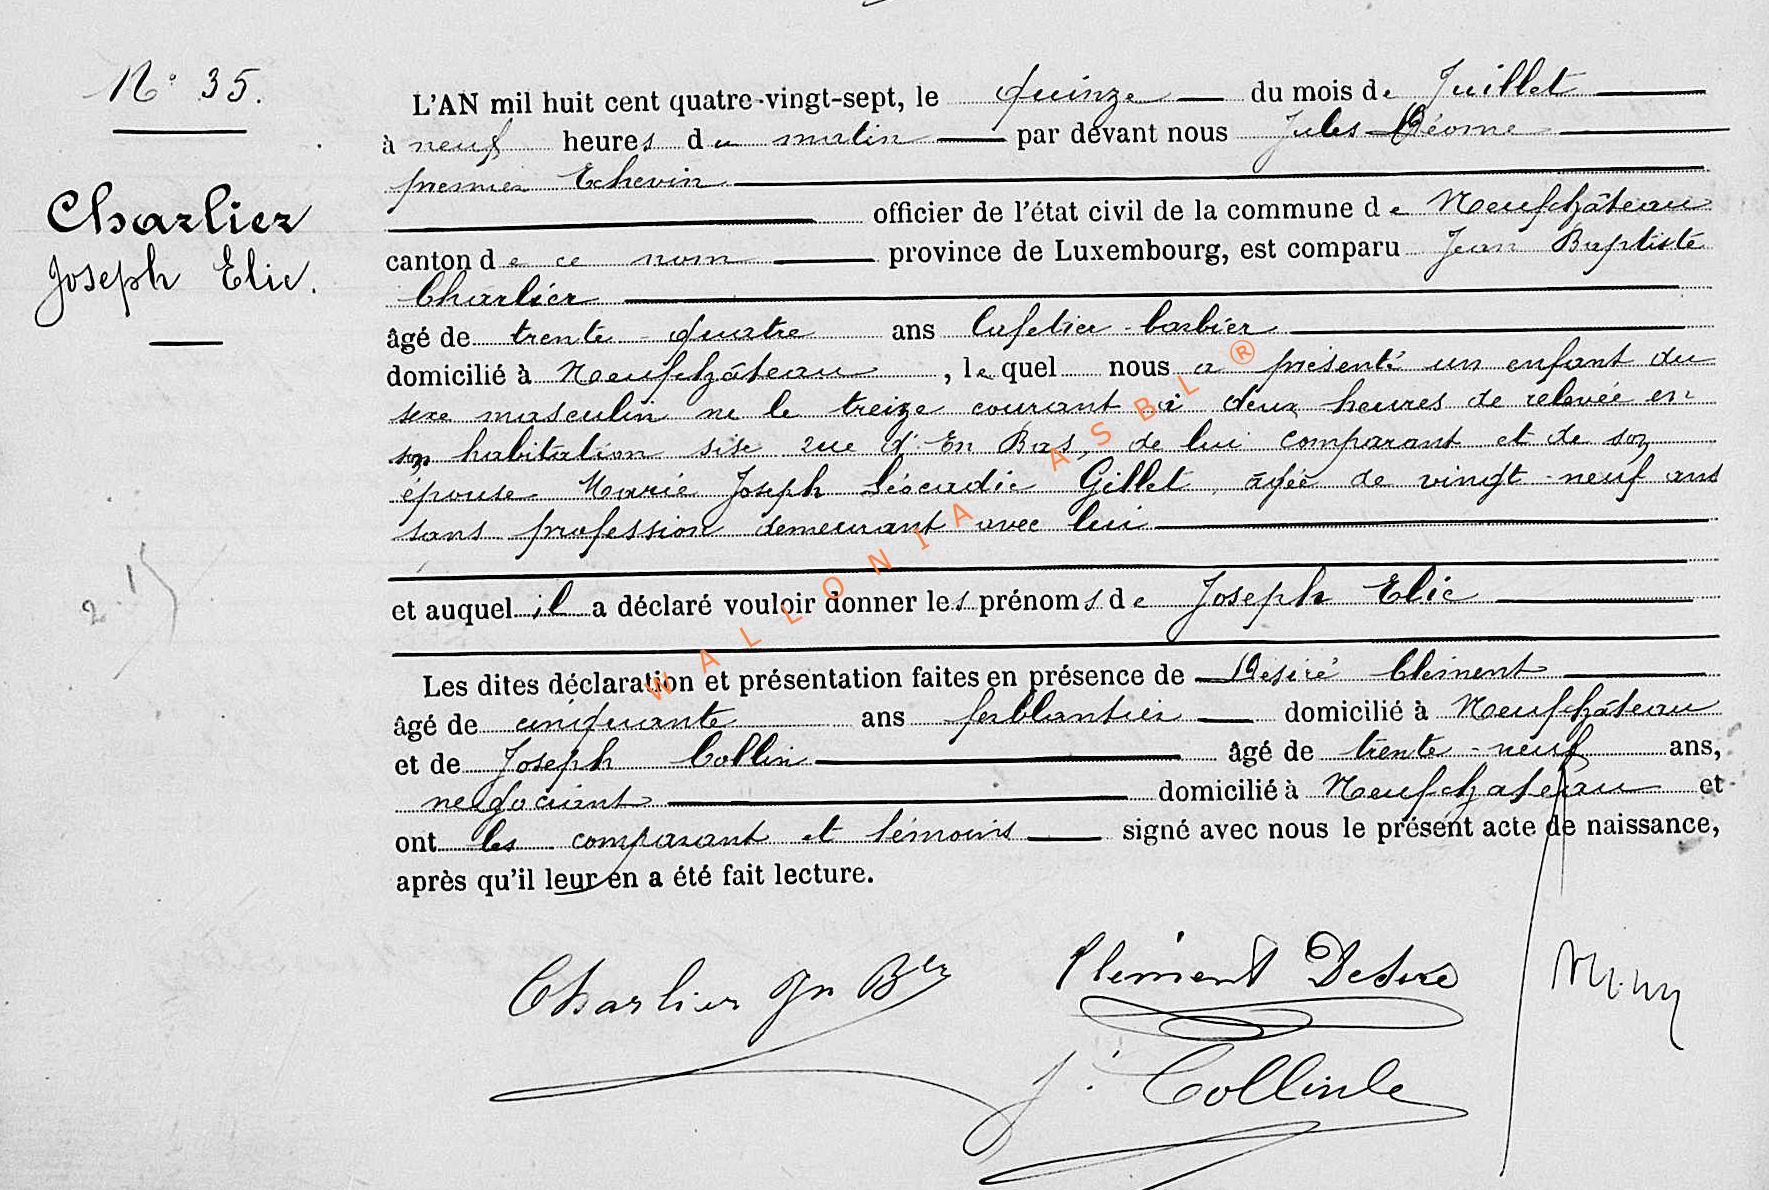 N° 35.
Charlier
Joseph Elie.
L'AN mil huit cent quatre-vingt-sept, le quinze du mois de Juillet
à neuf heures du matin par devant nous Jules Réome
premier Echevin
officier de l'état civil de la commune de Neufchâteau
canton de ce nom province de Luxembourg, est comparu Jean Baptiste
Charlier
âgé de trente-quatre ans Cafetier-barbier
domicilié à Neufchâteau, lequel nous a présenté un enfant du
sexe masculin né le treize courant à deux heures de relevée en
son habitation sise rue d'En Bas, de lui comparant et de son
épouse Marie Joseph Léocadie Gillet, agée de vingt-neuf ans
sans profession demeurant avec lui
et auquel il a déclaré vouloir donner les prénoms de Joseph Elie
Les dites déclaration et présentation faites en présence de Désiré Clément
âgé de cinquante ans ferblantier domicilié à Neufchâteau
et de Joseph Collin âgé de trente-neuf ans,
negociant domicilié à Neufchateau et
ont les comparant et témoins signé avec nous le présent acte de naissance,
après qu'il leur en a été fait lecture.
WALLONIA ASBL ®
2.1
Charlier Jn Bte
Clément Desire
J. Collin